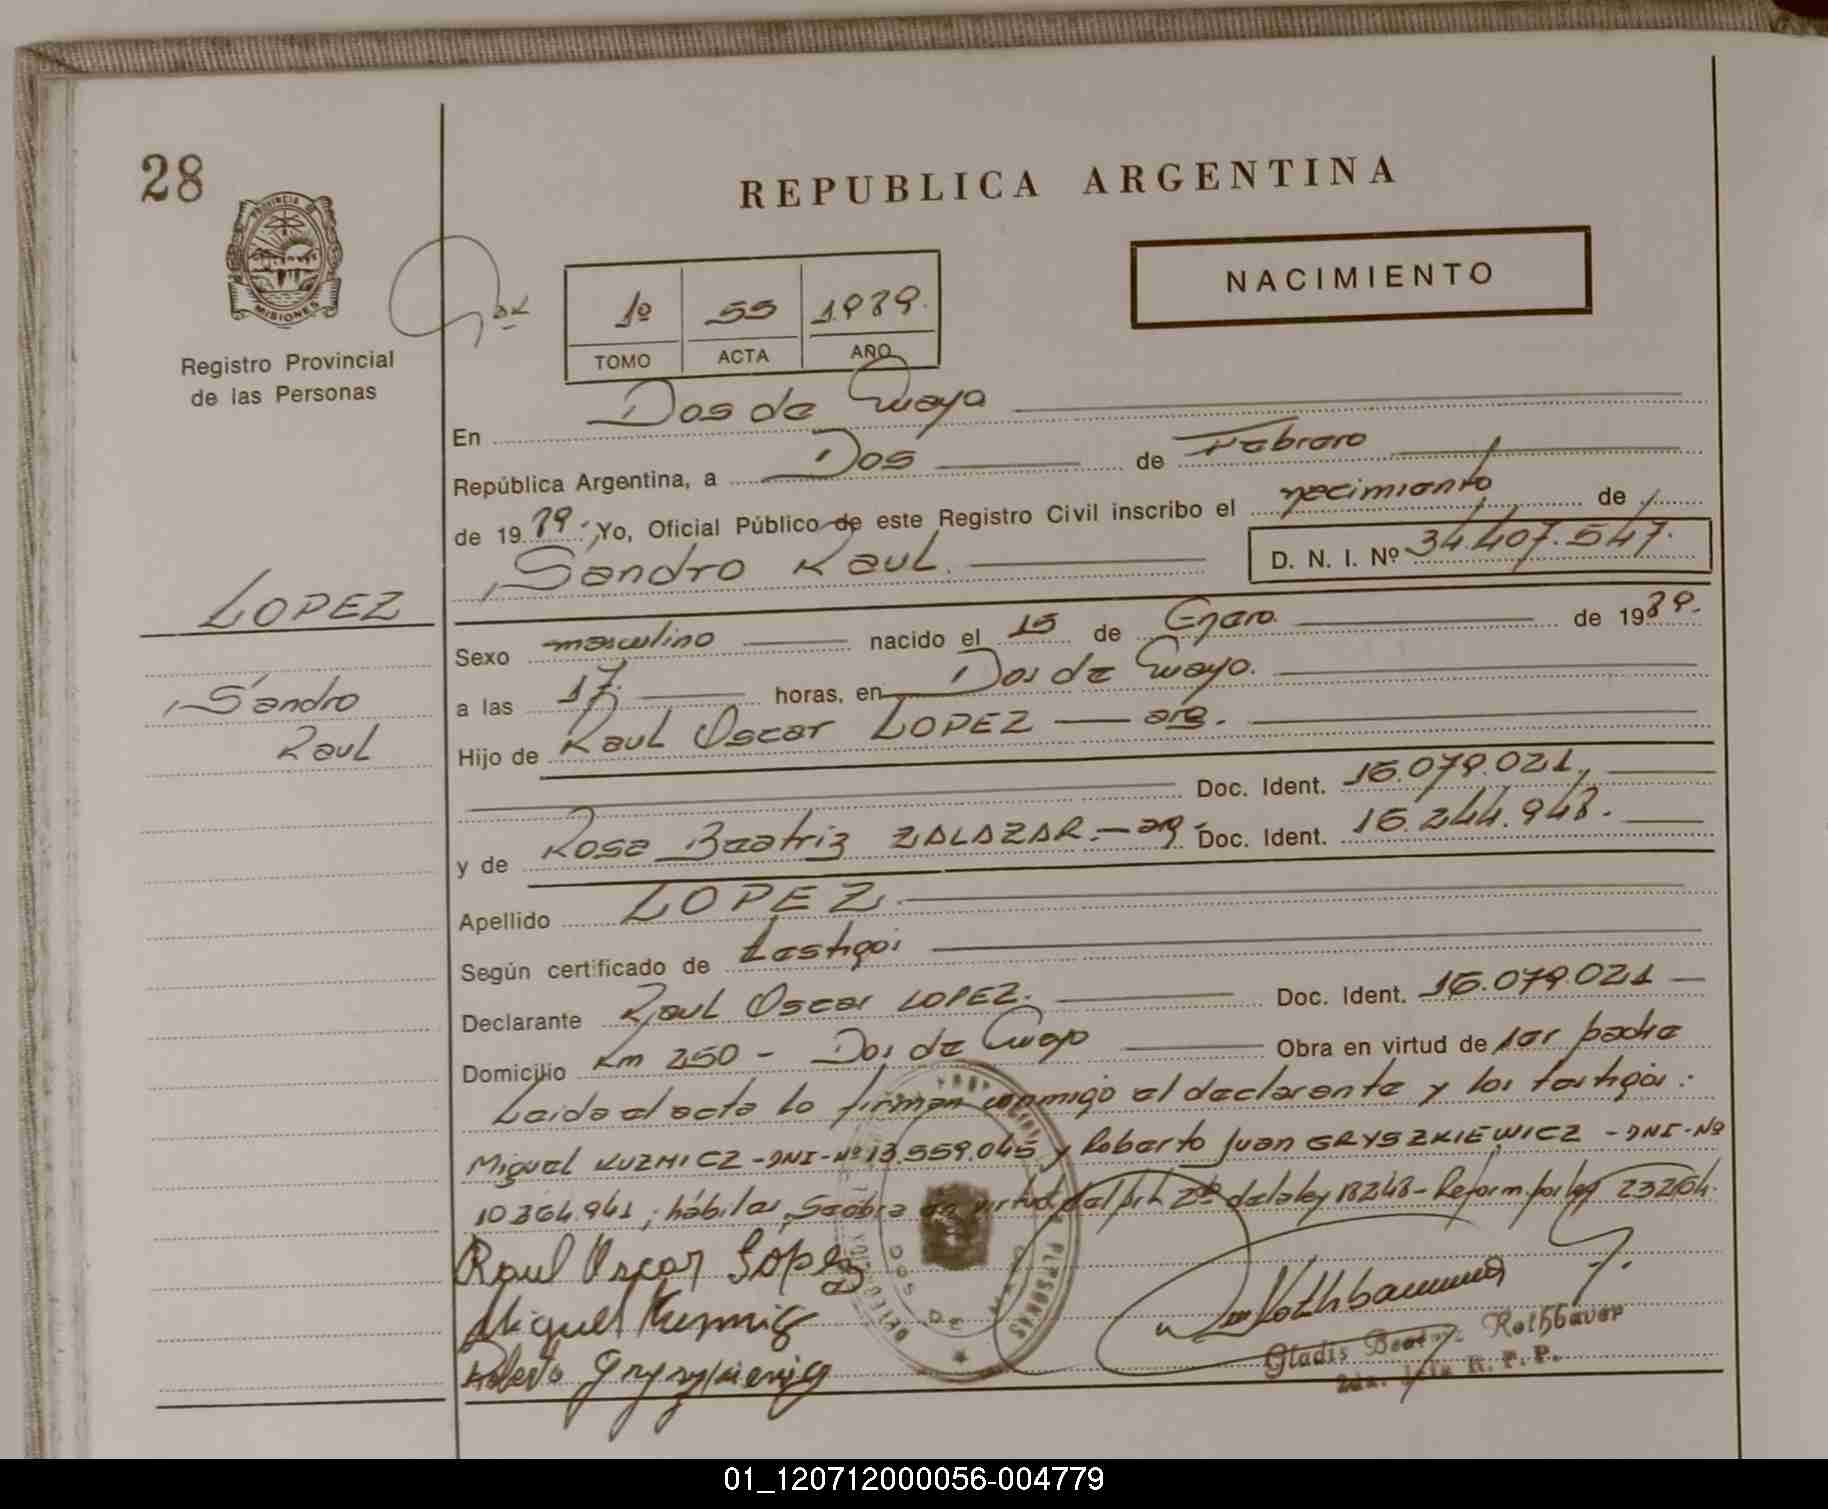 28
PROVINCIA DE
MISIONES
Registro Provincial
de las Personas
REPUBLICA ARGENTINA
NACIMIENTO
1º 55 1.989.
TOMO ACTA AÑO
En Dos de Mayo
República Argentina, a Dos de Febrero
de 19 89. Yo, Oficial Público de este Registro Civil inscribo el nacimiento de
Sandro Raul. D. N. I. Nº 34.407.547.
LOPEZ
Sandro
Raul
Sexo masculino nacido el 15 de Enero. de 19 89.
a las 17. horas, en Dos de Mayo.
Hijo de Raul Oscar LOPEZ — arg.
Doc. Ident. 16.079.021,
y de Rosa Beatriz ZALAZAR.— arg. Doc. Ident. 16.244.948.
Apellido LOPEZ.
Según certificado de testigos
Declarante Raul Oscar LOPEZ. Doc. Ident. 16.079.021
Domicilio Km 250 - Dos de Mayo Obra en virtud de ser padre
Leida el acta lo firman conmigo el declarante y los testigos:
Miguel KUZMICZ - DNI-Nº 13.559.045 y Roberto Juan GRYSZKIEWICZ - DNI-Nº
10.364.941; hábiles, Se obra en virtud del Art. 2do de la ley 18248 - Reform. por ley 23264.
Raul Oscar López
Miguel Kuzmicz
Roberto
Rothbauer
Gladis Beatriz Rothbauer
R. P. P.
PERSONAS
DOS DE
01_120712000056-004779